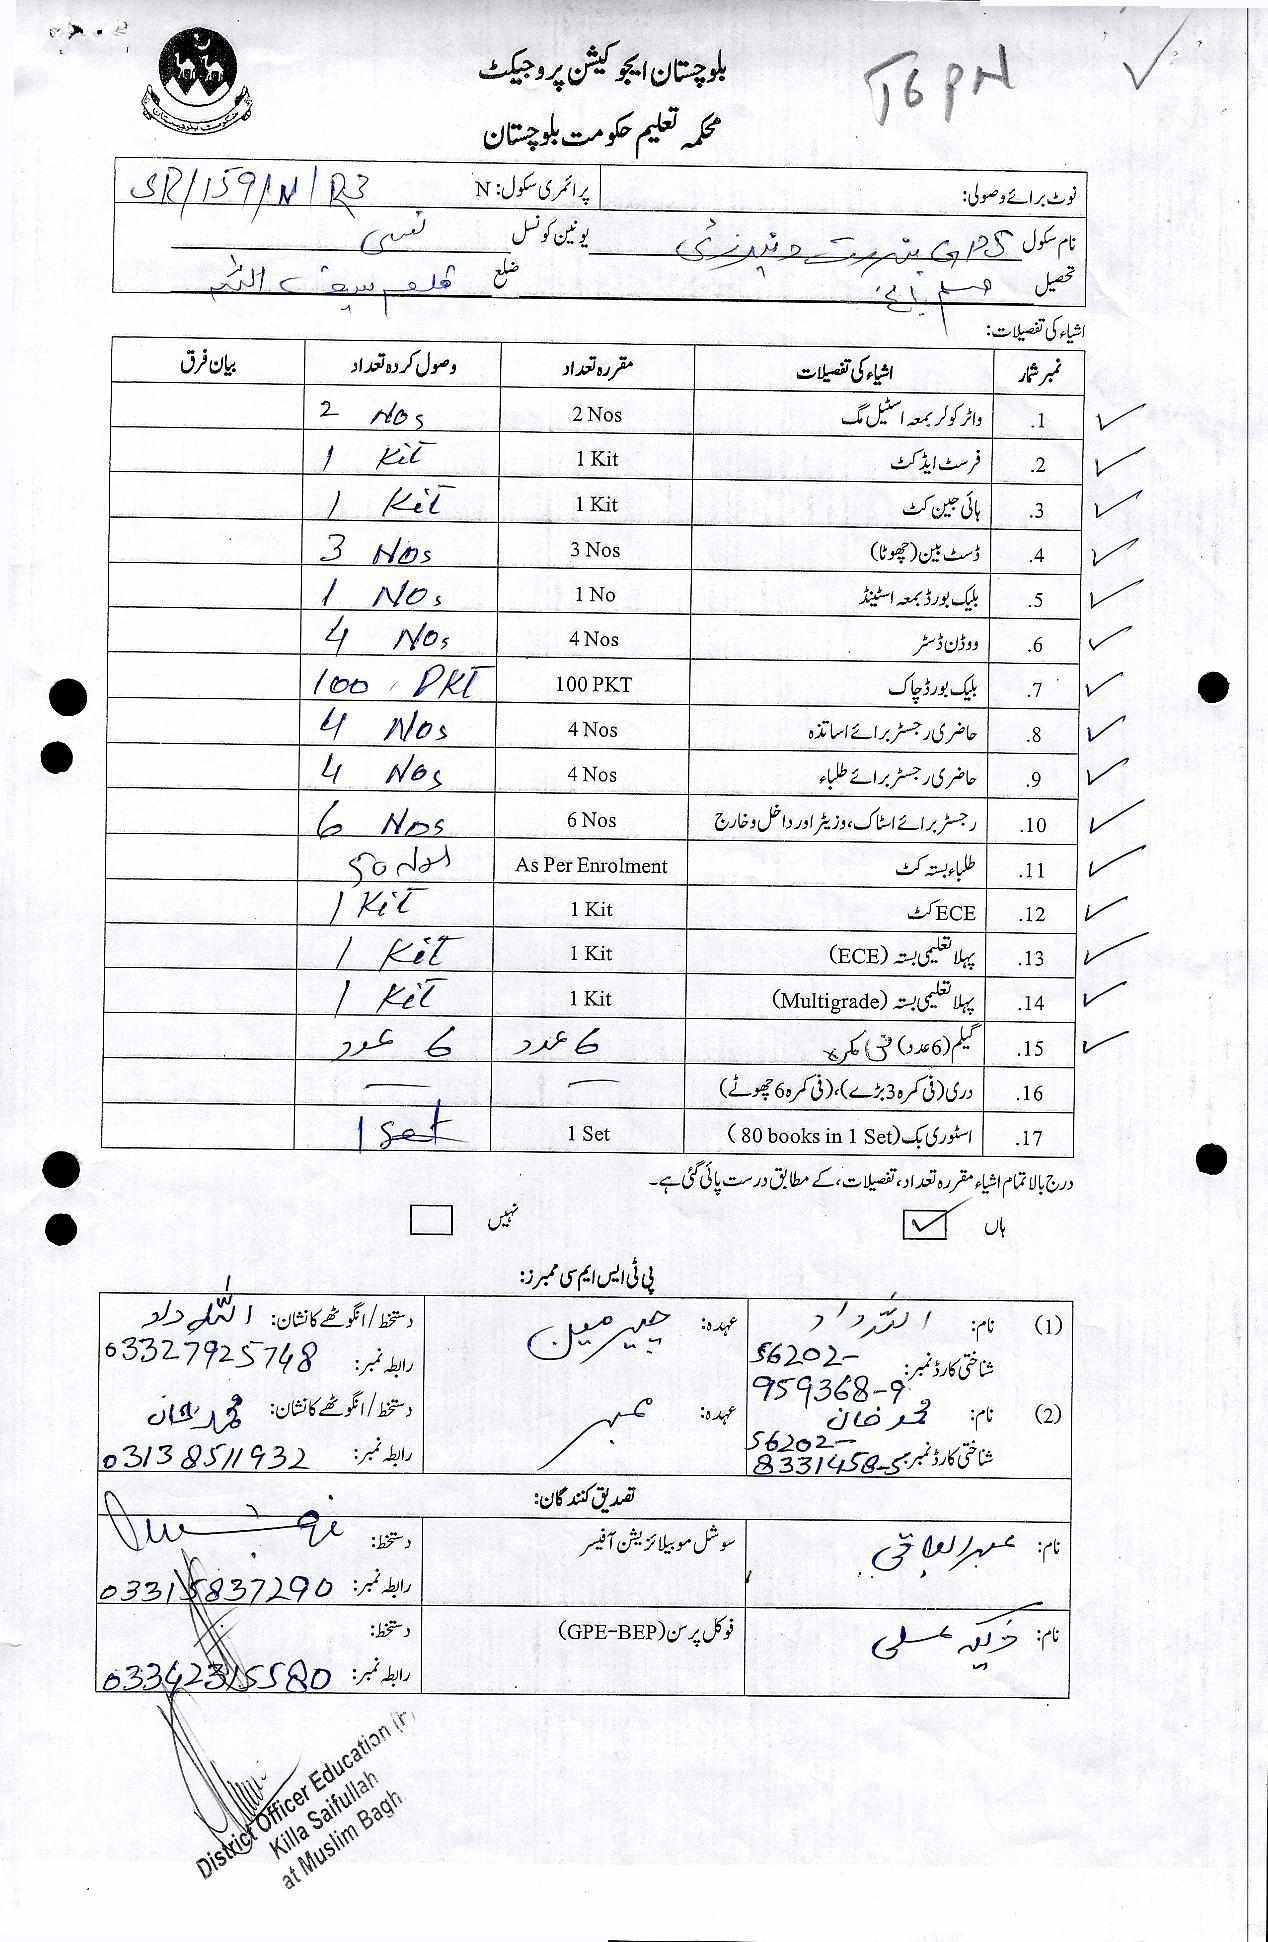 TGPN
بلوچستان ایجوکیشن پروجیکٹ
محکمہ تعلیم حکومت بلوچستان
نوٹ برائے وصولی: پرائمری سکول: N SR/159/N/R3
نام سکول GPS یونین کونسل
تحصیل مسلم باغ ضلع قلعہ سیف اللہ
اشیاء کی تفصیلات:
نمبر شمار اشیاء کی تفصیلات مقررہ تعداد وصول کردہ تعداد بیان فرق
1. واٹر کولر بمعہ اسٹیل مگ 2 Nos 2 Nos
2. فرسٹ ایڈ کٹ 1 Kit 1 Kit
3. ہائی جین کٹ 1 Kit 1 Kit
4. ڈسٹ بین (چھوٹا) 3 Nos 3 Nos
5. بلیک بورڈ بمعہ اسٹینڈ 1 No 1 Nos
6. ووڈن ڈسٹر 4 Nos 4 Nos
7. بلیک بورڈ چاک 100 PKT 100 PKT
8. حاضری رجسٹر برائے اساتذہ 4 Nos 4 Nos
9. حاضری رجسٹر برائے طلباء 4 Nos 4 Nos
10. رجسٹر برائے اسٹاک، وزیٹر اور داخل و خارج 6 Nos 6 Nos
11. طلباء بستہ کٹ As Per Enrolment 50 Nos
12. ECE کٹ 1 Kit 1 Kit
13. پہلا تعلیمی بستہ (ECE) 1 Kit 1 Kit
14. پہلا تعلیمی بستہ (Multigrade) 1 Kit 1 Kit
15. گیلم (6 عدد) فی کمرہ 6 عدد 6 عدد
16. دری (فی کمرہ 3 بڑے)، (فی کمرہ 6 چھوٹے) — —
17. اسٹوری بک (80 books in 1 Set) 1 Set 1 Set
درج بالا تمام اشیاء مقررہ تعداد، تفصیلات، کے مطابق درست پائی گئی ہے۔
ہاں نہیں
پی ٹی ایس ایم سی ممبرز:
(1) نام: اللہ داد عہدہ: چیئرمین دستخط/انگوٹھے کا نشان: اللہ داد
شناختی کارڈ نمبر: 56202-959368-9 رابطہ نمبر: 03327925748
(2) نام: محمد خان عہدہ: ممبر دستخط/انگوٹھے کا نشان: محمد خان
شناختی کارڈ نمبر: 56202-8331458-5 رابطہ نمبر: 03138511932
تصدیق کنندگان:
نام: عبدالباقی سوشل موبیلائزیشن آفیسر دستخط:
رابطہ نمبر: 03315837290
نام: فوکل پرسن (GPE-BEP) دستخط:
رابطہ نمبر: 03342315580
District Officer Education
Killa Saifullah
at Muslim Bagh